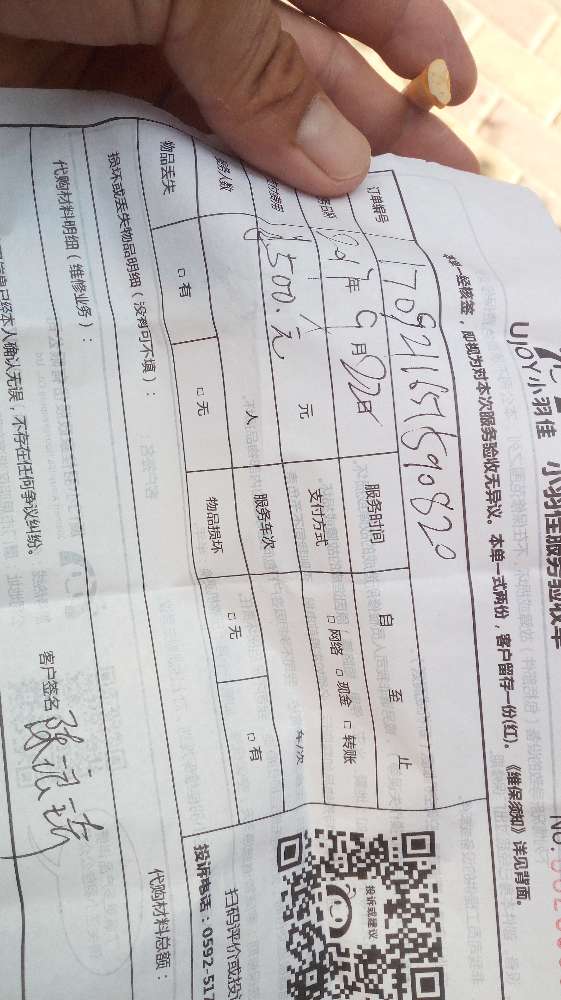 UJOY小羽佳 小羽佳服务验收单
一经核金，即视为对本次服务验收无异议。本单一式两份，客户留存一份(红)。《维保须知》详见背面。
订单编号
服务时间 自 至 止
年 9月22日
支付方式 □网络 □现金 □转账
500.元 元
人数 人 服务车次 车/次
物品丢失 □有 □无 物品损坏 □无 □有
损坏或丢失物品明细（没有可不填）：
代购材料明细（维修业务）： 代购材料总额：
信息已经本人确认无误，不存在任何争议纠纷。 客户签名
投诉或建议
扫码评价或投诉
投诉电话：0592-517